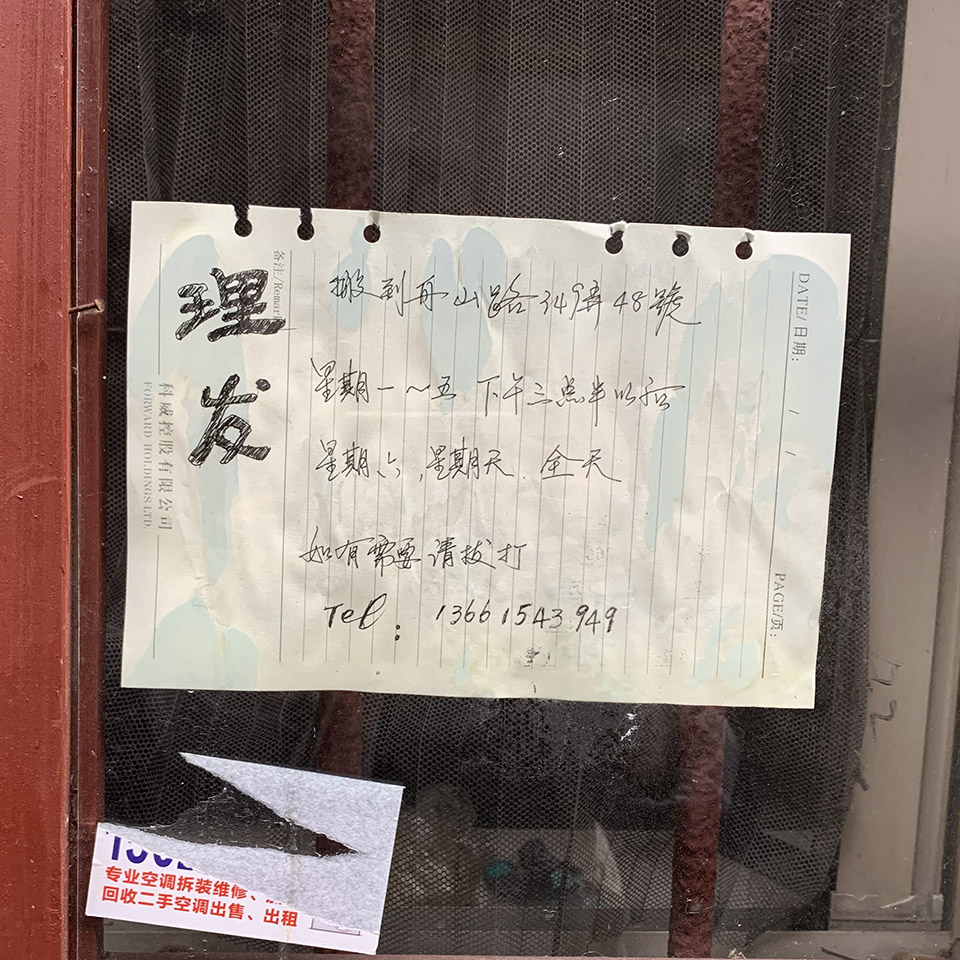 理发
搬到舟山路349弄48號
星期一～五 下午三点半以后
星期六,星期天.全天
如有需要请拔打
Tel: 13661543949
备注/Remar
科威控股有限公司
FORWARD HOLDINGS LTD.
DATE/日期: / /
PAGE/页:
专业空调拆装维修、
回收二手空调出售、出租